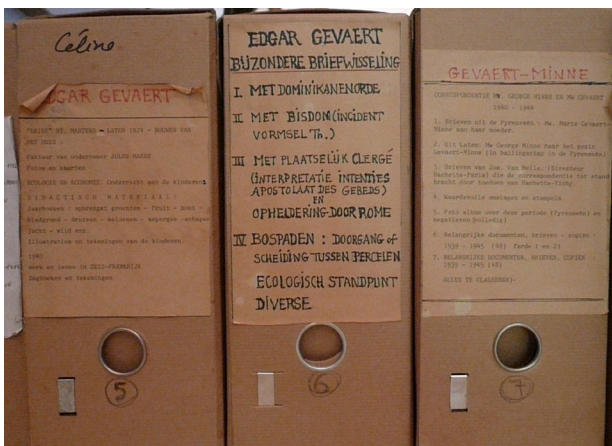 Céline
EDGAR GEVAERT
"ERISE" ST. MARTENS - LATEM 1924 - BOUWEN VAN
HET HUIS :
Faktuur van ondernemer JULES HAECK
Fotos en kaarten
ECOLOGIE EN ECONOMIE: Onderricht aan de kinderen:
DIDACTISCH MATERIAAL:
Jaarboeken : opbrengst groenten - fruit - hout -
Bladgrond - druiven - meloenen - asperges - enfages
Jacht - wild enz.
Illustratie en tekeningen van de kinderen.
1940
Werk en leven in ZUID-FRANKRIJK
Dagboeken en tekeningen.
5
EDGAR GEVAERT
BIJZONDERE BRIEFWISSELING
I. MET DOMINIKANENORDE
II MET BISDOM (INCIDENT
VORMSEL TH.)
III MET PLAATSELIJK CLERGÉ
(INTERPRETATIE INTENTIES
APOSTOLAAT DES GEBEDS)
EN
OPHELDERING DOOR ROME
IV BOSPADEN : DOORGANG of
SCHEIDING TUSSEN PERCELEN
ECOLOGISCH STANDPUNT
DIVERSE
6
GEVAERT-MINNE
CORRESPONDENTIE Mw. GEORGE MINNE EN MW GEVAERT
1940 - 1944
1. Brieven uit de Pyreneeën : Mw. Marie Gevaert-
Minne aan haar moeder.
2. Uit Latem: Mw George Minne aan het gezin
Gevaert-Minne (in ballingschap in de Pyreneeën)
3. Brieven van Joz. Van Melle. (Directeur
Hachette-Paris) die de correspondentie tot stand
bracht door toedoen van Hachette-Vichy
4. Waardevolle omslagen en stempels.
5. Foto album over deze periode (Pyreneeën) en
negatieven volledig
6. Belangrijke documenten, brieven - copiën
1939 - 1945 (40) farde 1 en 2)
7. BELANGRIJKE DOCUMENTEN, BRIEVEN, COPIEN
1939 - 1945 (40)
ALLES TE KLASSEREN-
7